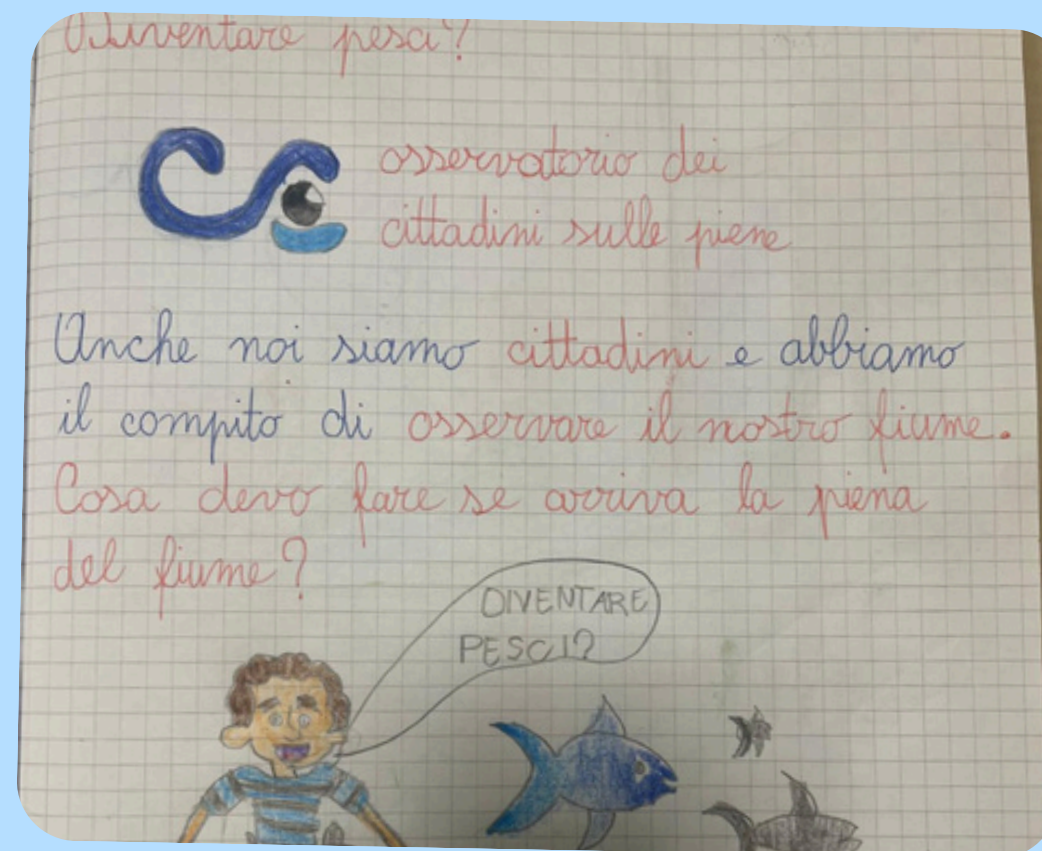 Diventare pesci?
osservatorio dei
cittadini sulle piene
Anche noi siamo cittadini e abbiamo
il compito di osservare il nostro fiume.
Cosa devo fare se arriva la piena
del fiume?
DIVENTARE
PESCI?